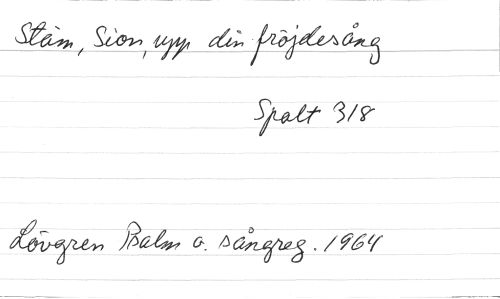 Stäm, Sion, upp din fröjdesång
Spalt 318
Lövgren Psalm o. sångreg. 1964